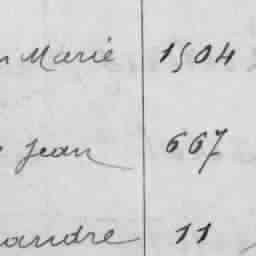 Marie 1504
Jean 667
andre 11